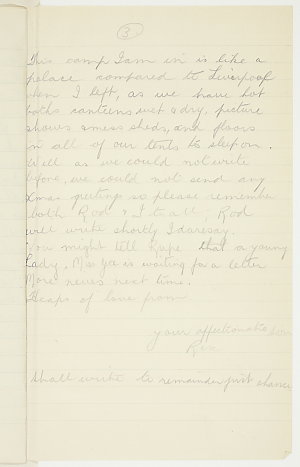 (3)
This camp I am in is like a
palace compared to Liverpool
when I left, as we have hot
baths canteens wet & dry, picture
shows & mess sheds, and floors
in all of our tents to sleep on.
Well as we could not write
before, we could not send any
Xmas greetings so please remember
both Rod & I to all; Rod
will write shortly I daresay.
You might tell that a young
Lady, Miss is waiting for a letter
More news next time.
Heaps of love from
your affectionate son
Rex
Shall write to remainder first chance